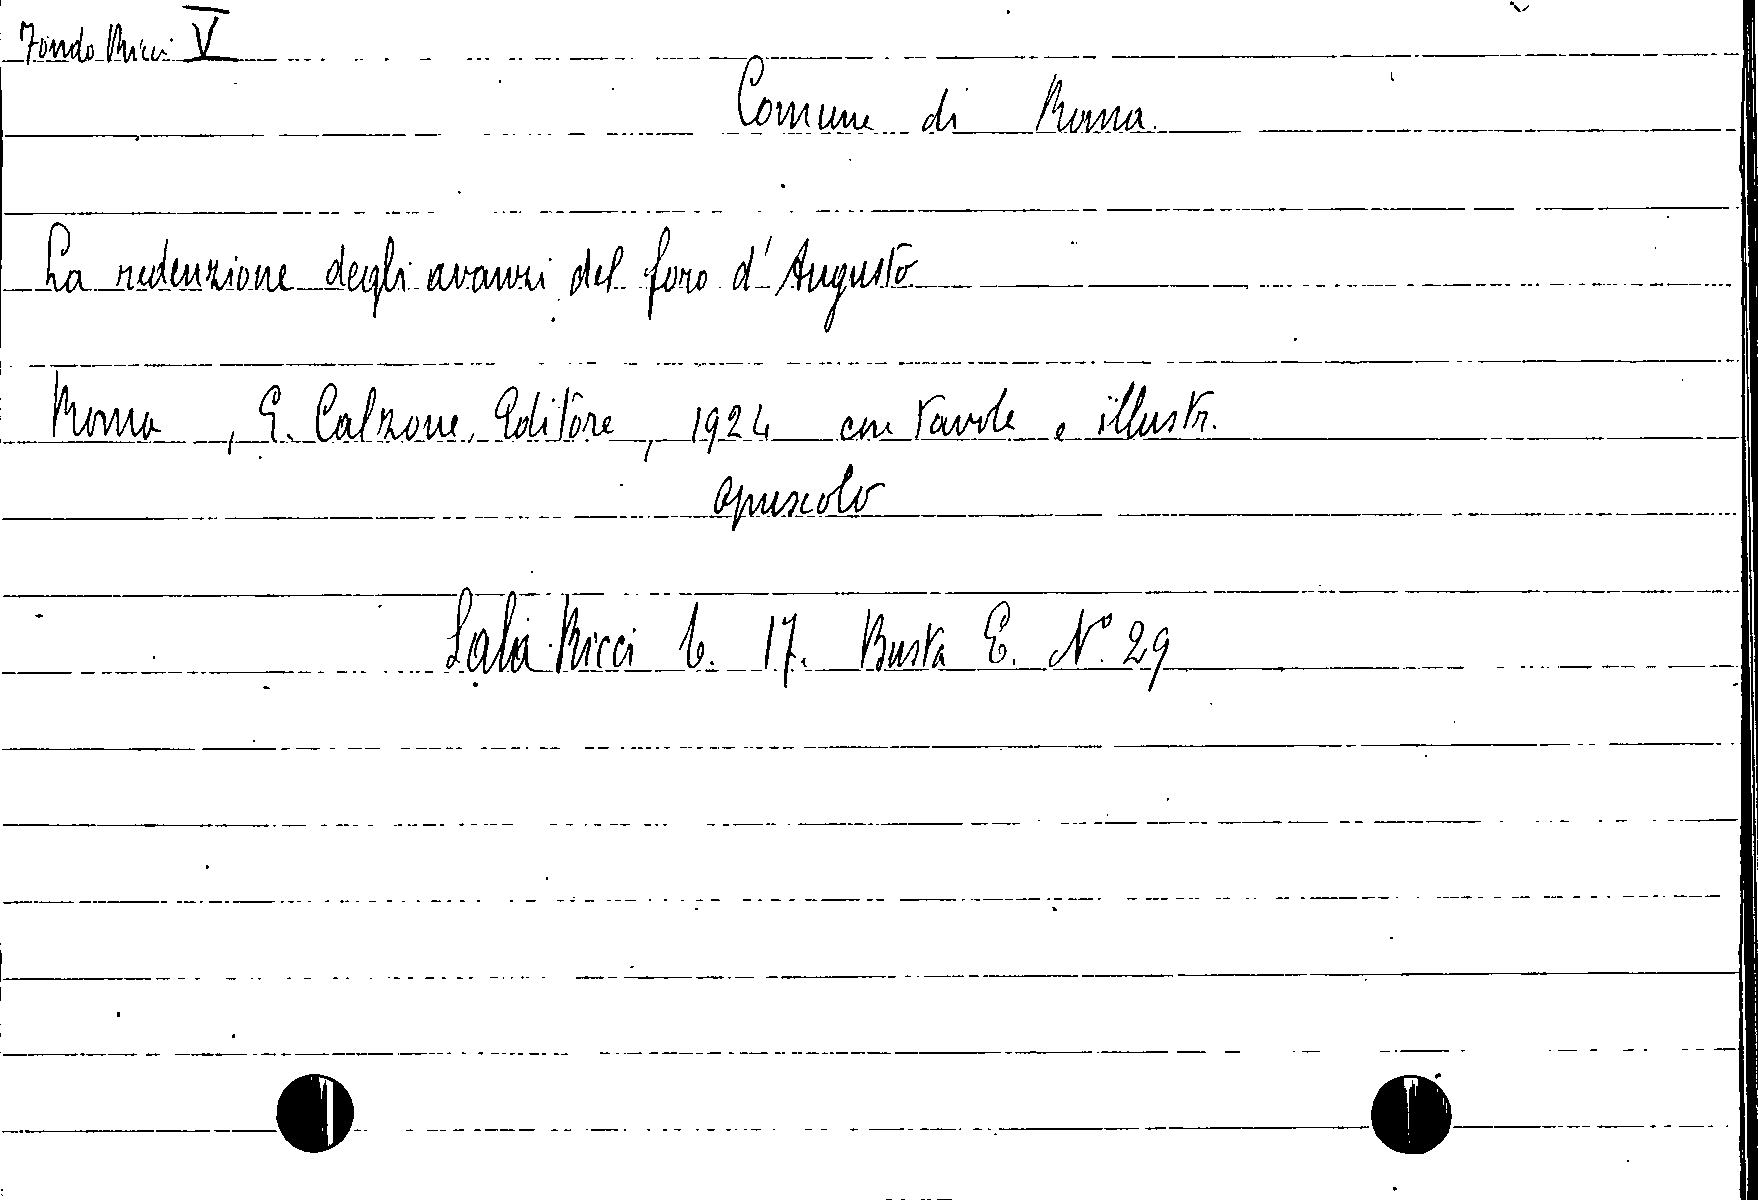 Fondo Ricci V
Comune di Roma.
La redenzione degli avanzi del foro d'Augusto
Roma , E. Calzone, Editore, 1924 con tavole e illustr.
opuscolo
Sala Ricci C. 17. Busta E. N° 29